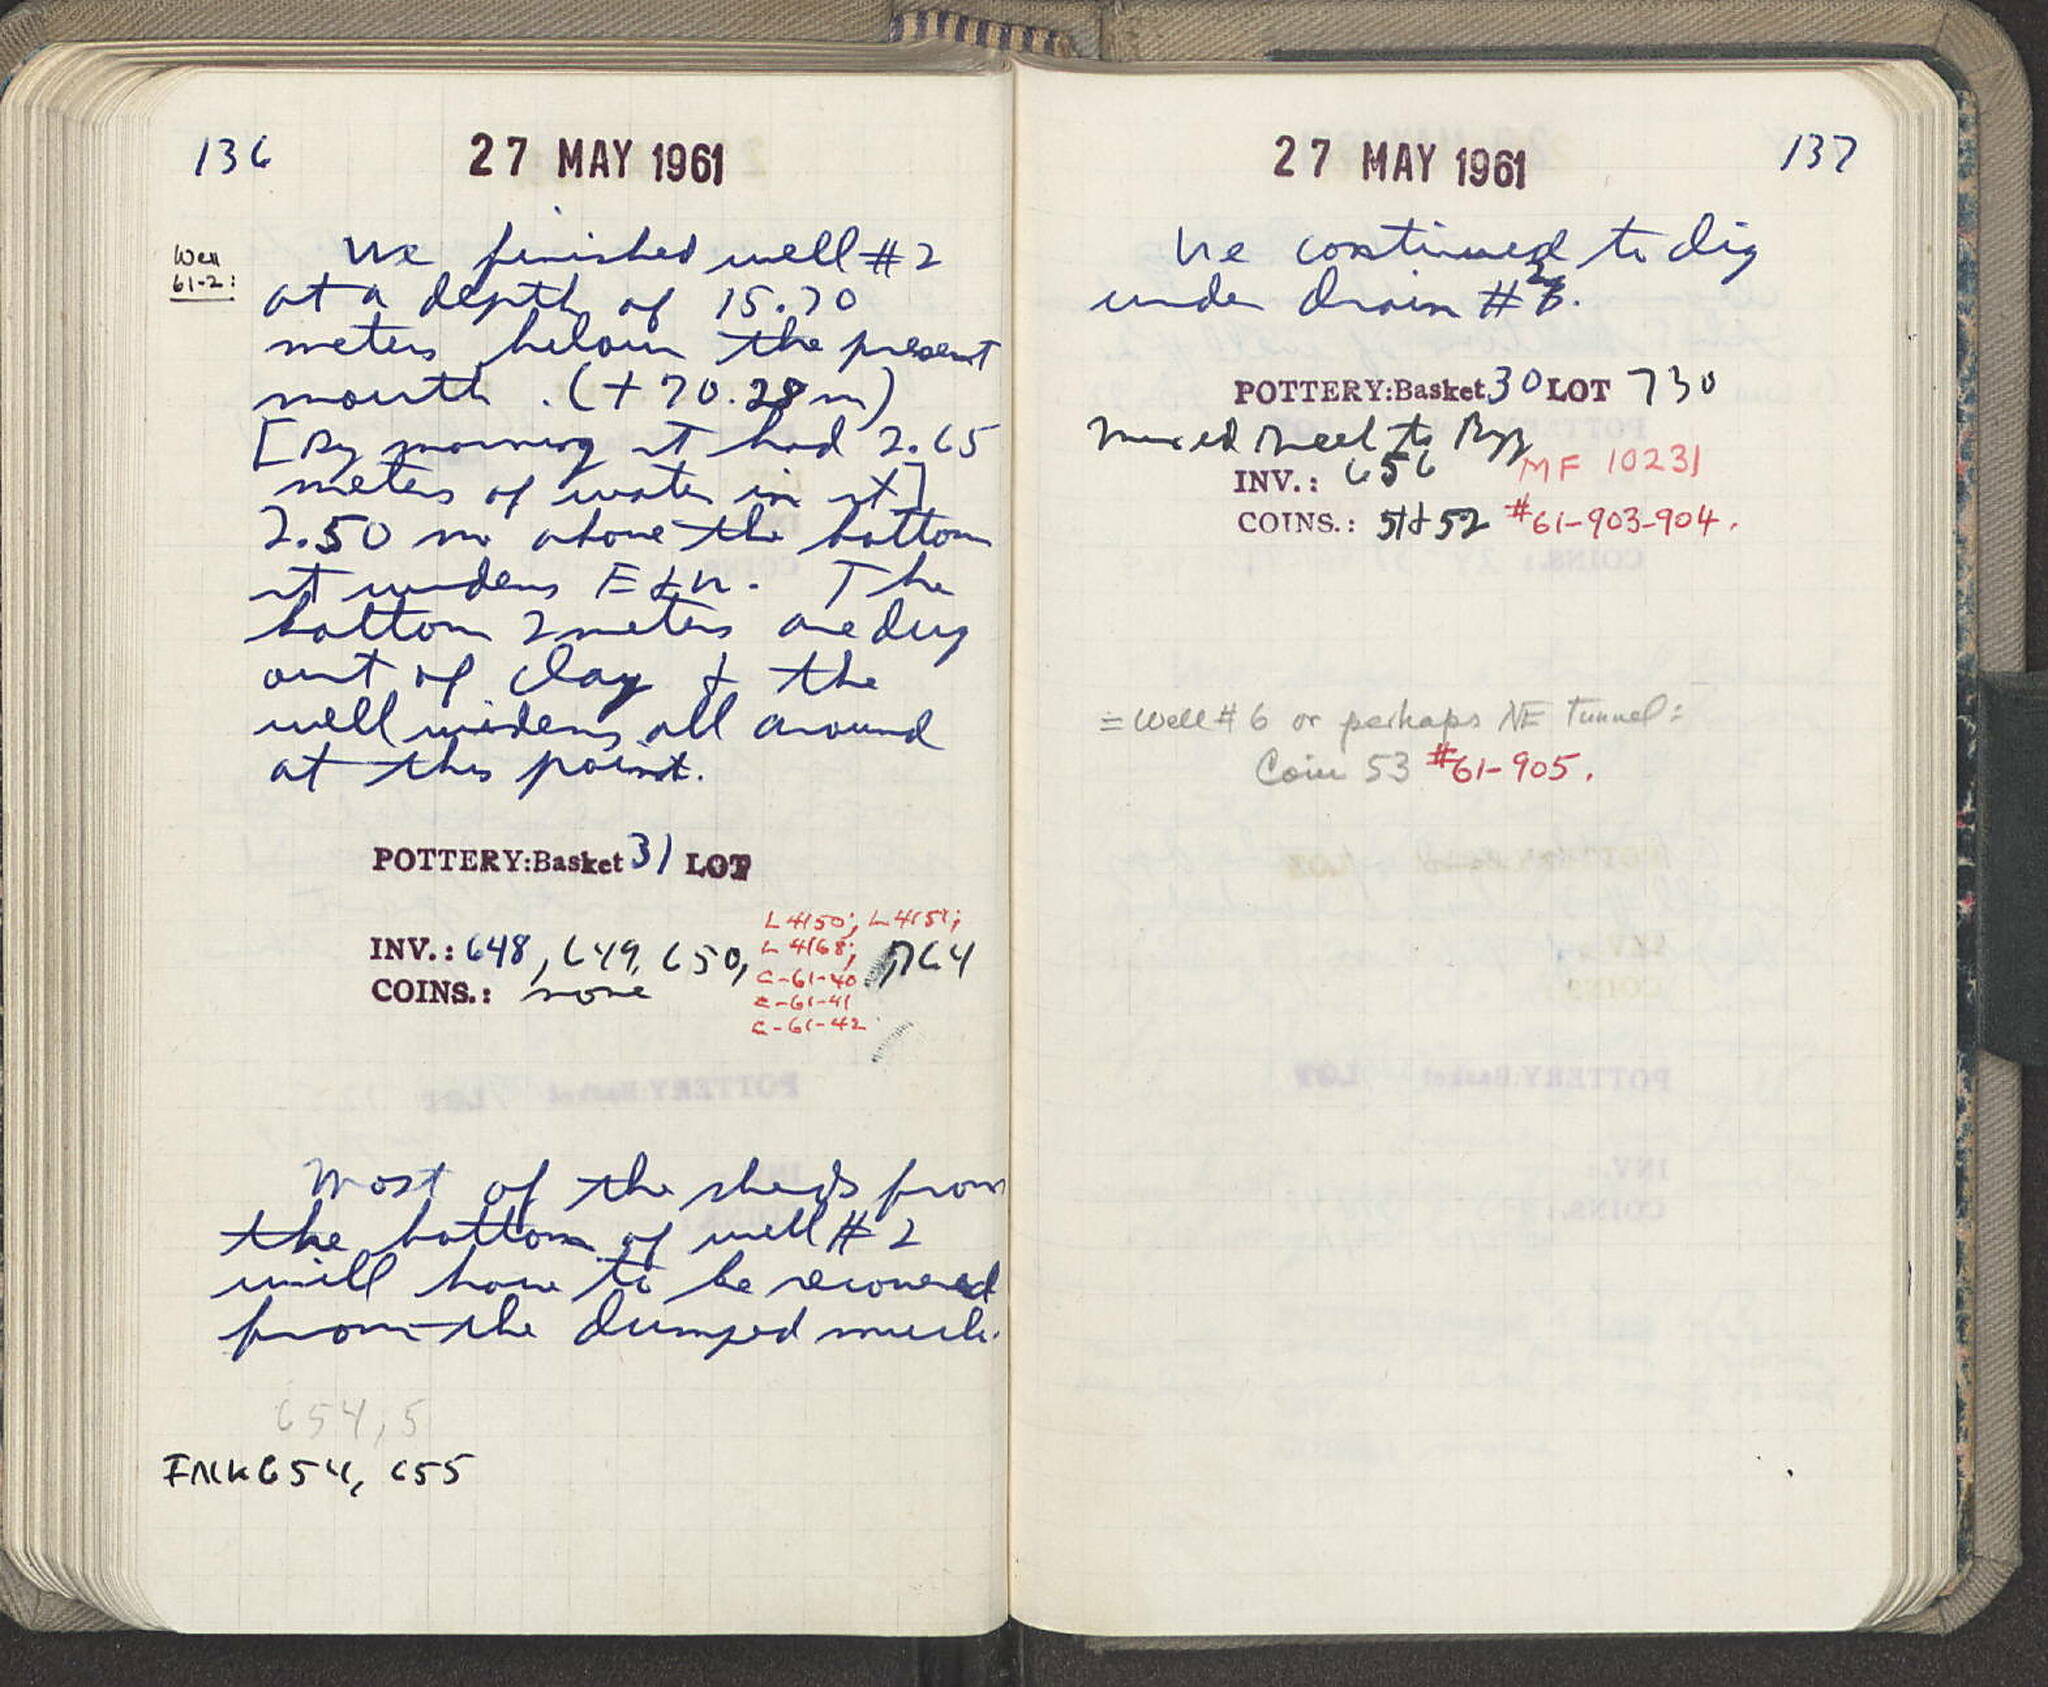 136
27 MAY 1961
Well
61-2:
We finished well #2
at a depth of 15.70
meters below the present
mouth. (+70.28m)
[By morning it had 2.65
meters of water in it]
2.50 m above the bottom
it widens E & W. The
bottom 2 meters are dug
out of clay & the
well widens all around
at this point.
POTTERY:Basket 31 LOT
L 4150; L 4151;
L 4168;
INV.: 648, 649, 650, 764
C-61-40
COINS.: none
C-61-41
C-61-42
Most of the sherds from
the bottom of well #2
will have to be recovered
from the dumped muck.
654, 5
654, 655
27 MAY 1961
137
We continued to dig
under drain #2.
POTTERY:Basket 30 LOT 730
mixed to Byz
INV.: 656 MF 10231
COINS.: 51 & 52 #61-903-904.
= Well #6 or perhaps NE Tunnel:
Coin 53 #61-905.